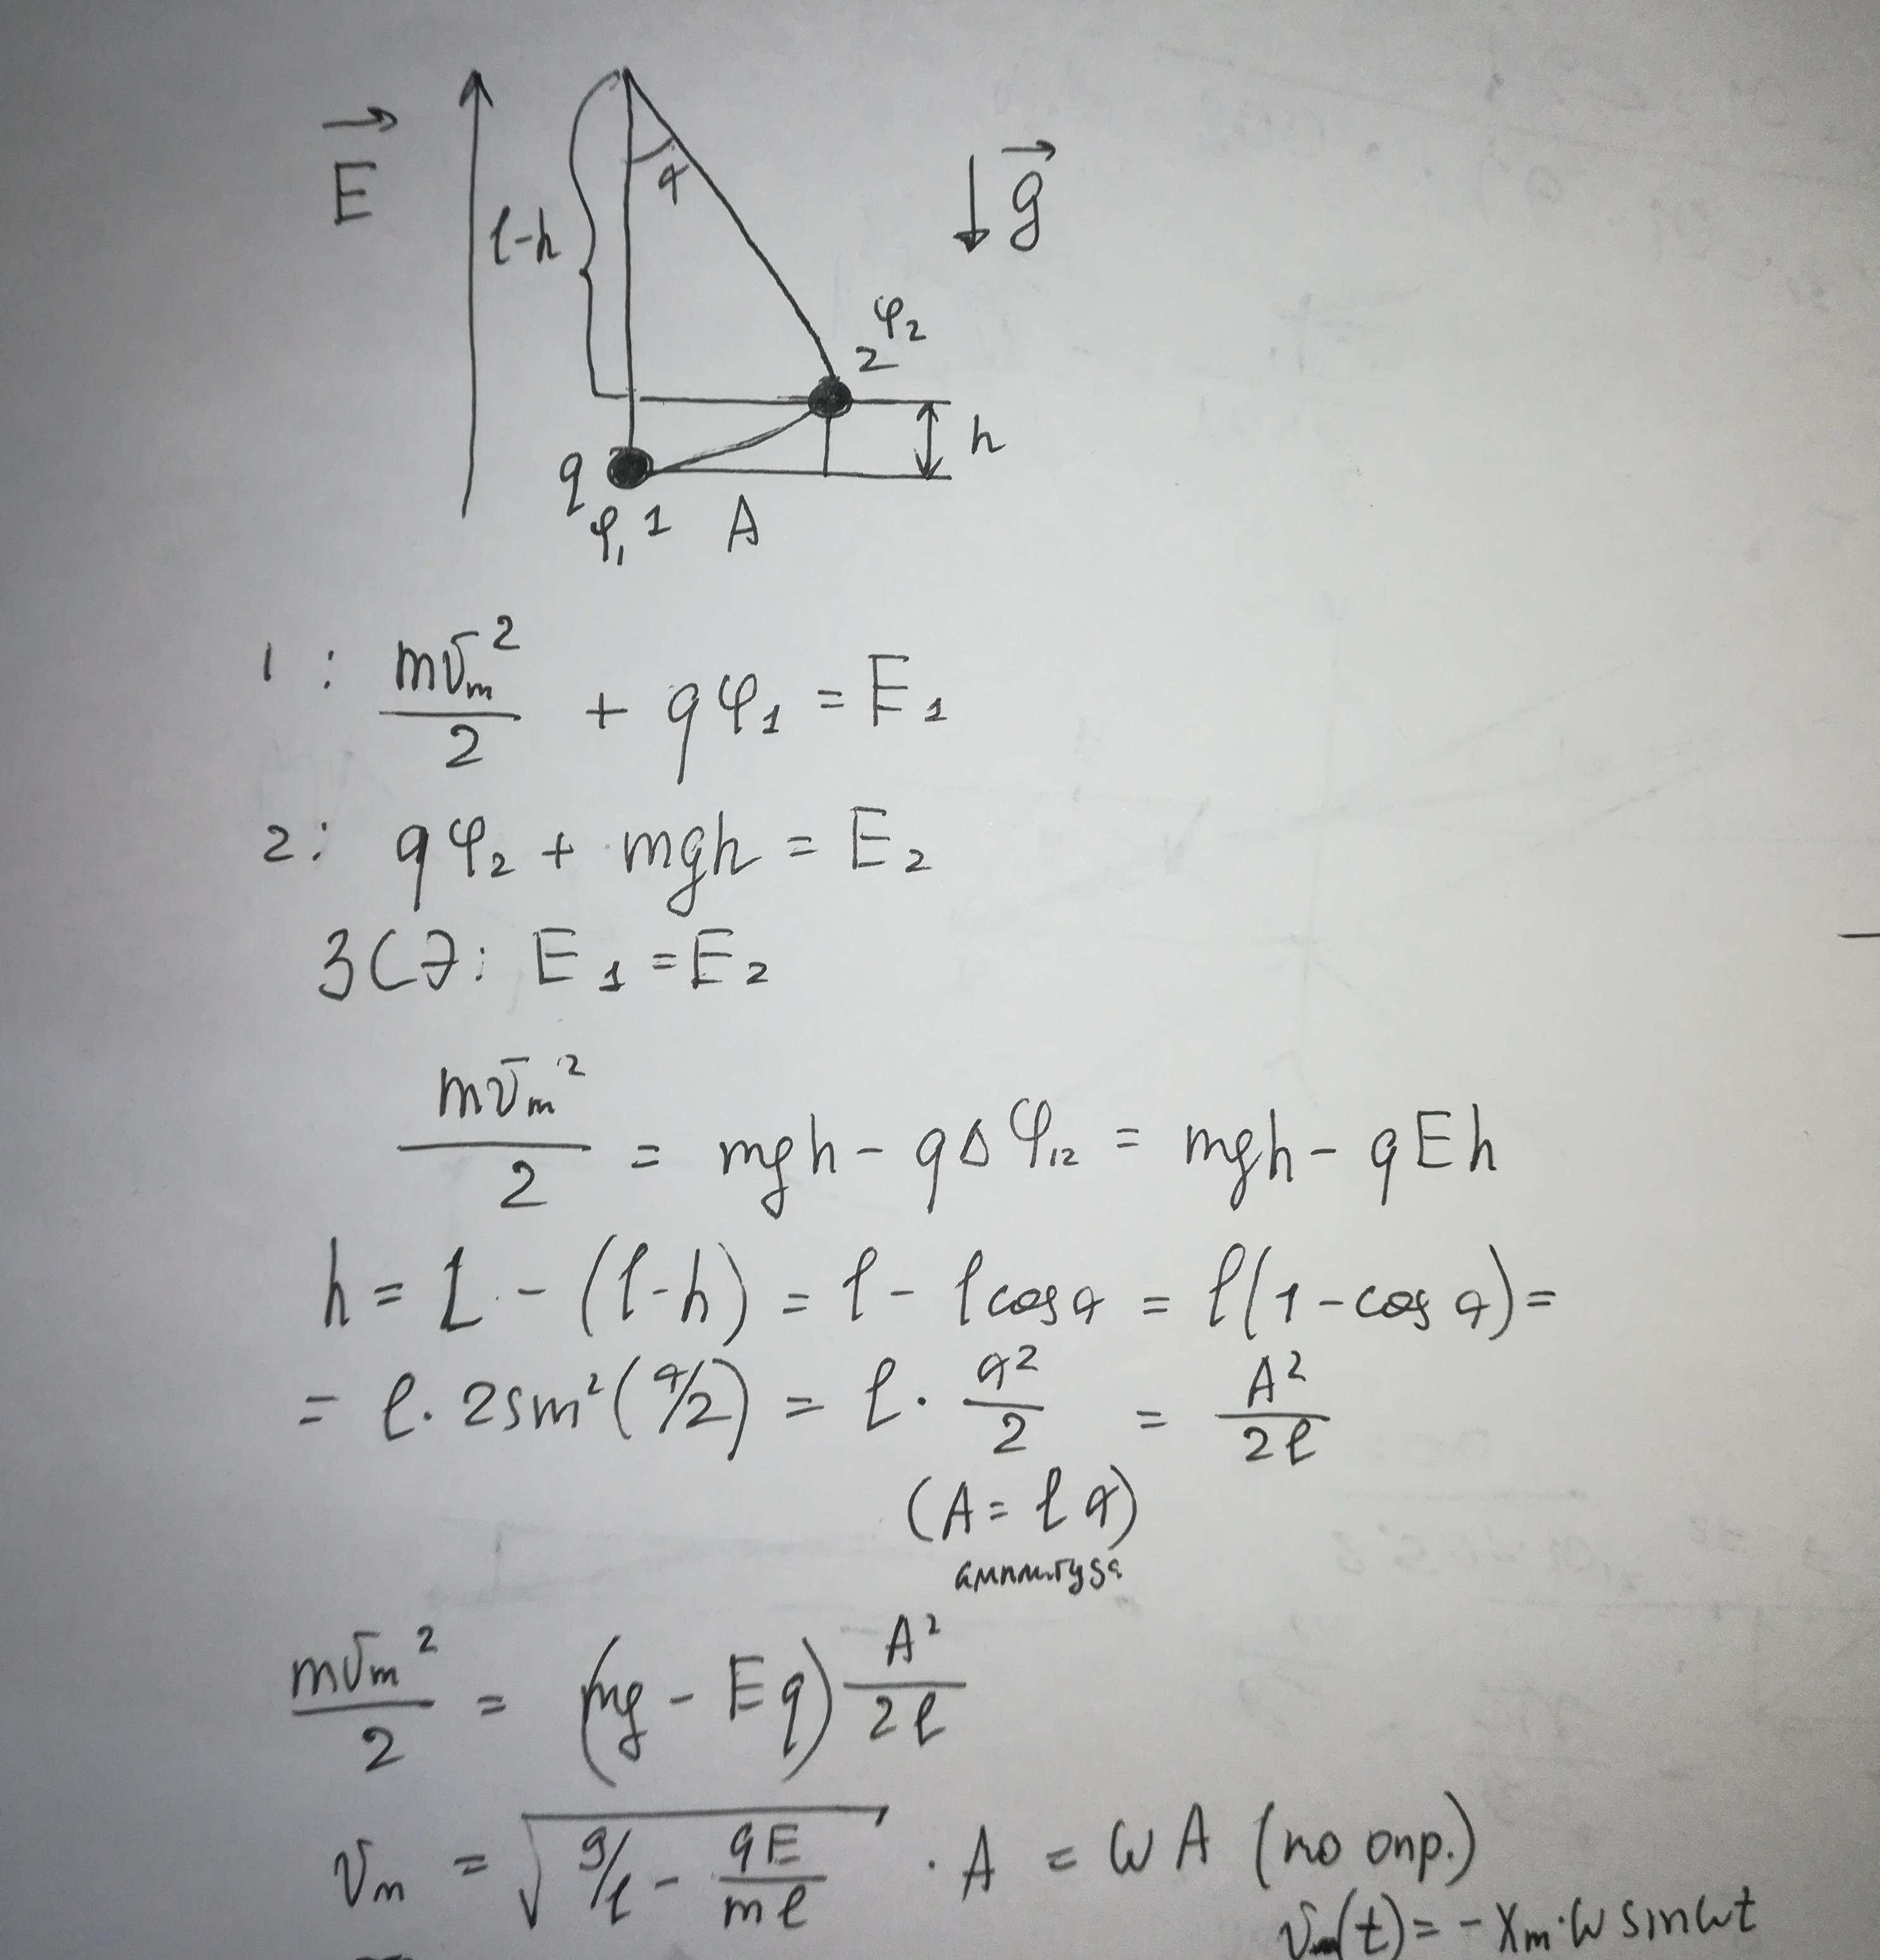 E⃗
l-h
α
g⃗
φ₂
2
h
q
φ₁ 1 A
1: mv_m²/2 + qφ₁ = E₁
2: qφ₂ + mgh = E₂
ЗСЭ: E₁ = E₂
mv_m²/2 = mgh - qΔφ₁₂ = mgh - qEh
h = L - (l-h) = l - l cos α = l(1 - cos α) =
= l · 2sin²(α/2) = l · α²/2 = A²/2l
(A = lα)
амплитуда
mv_m²/2 = (mg - Eq) A²/2l
v_m = √(g/l - qE/ml) · A = ωA (по опр.)
v_m(t) = -x_m · ω sin ωt